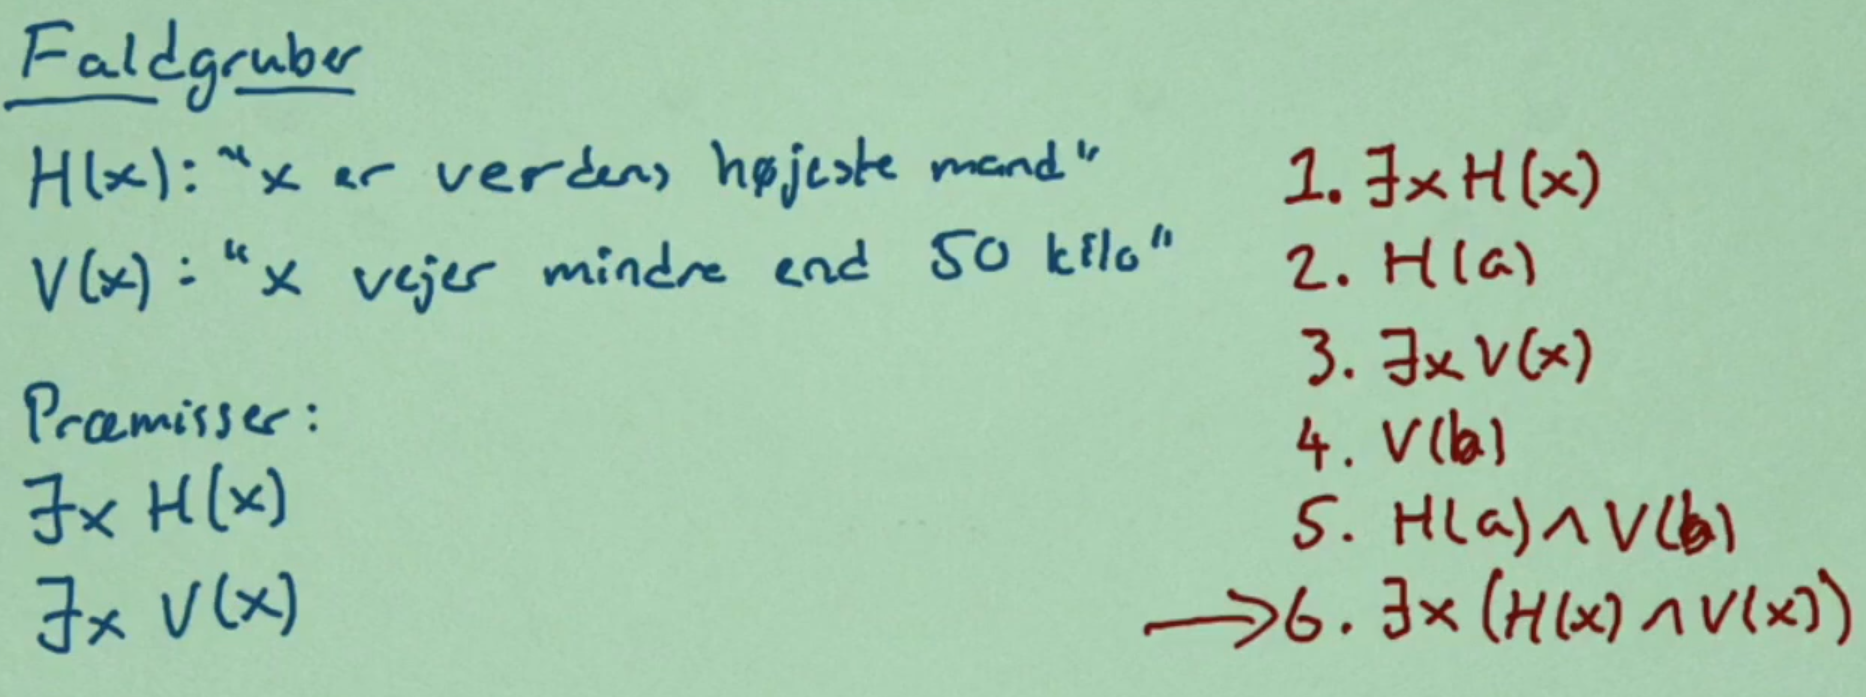 Faldgruber
H(x): "x er verdens højeste mand"
V(x): "x vejer mindre end 50 kilo"
Præmisser:
∃x H(x)
∃x V(x)
1. ∃x H(x)
2. H(a)
3. ∃x V(x)
4. V(b)
5. H(a) ∧ V(b)
→ 6. ∃x (H(x) ∧ V(x))